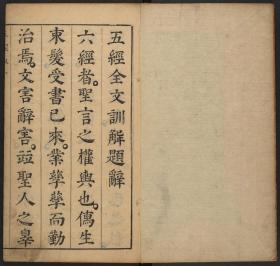 五經全文訓解題辭
六經者聖言之權輿也儁生
束髮受書已來業孳孳而勤
治焉文害辭害竝聖人之辠